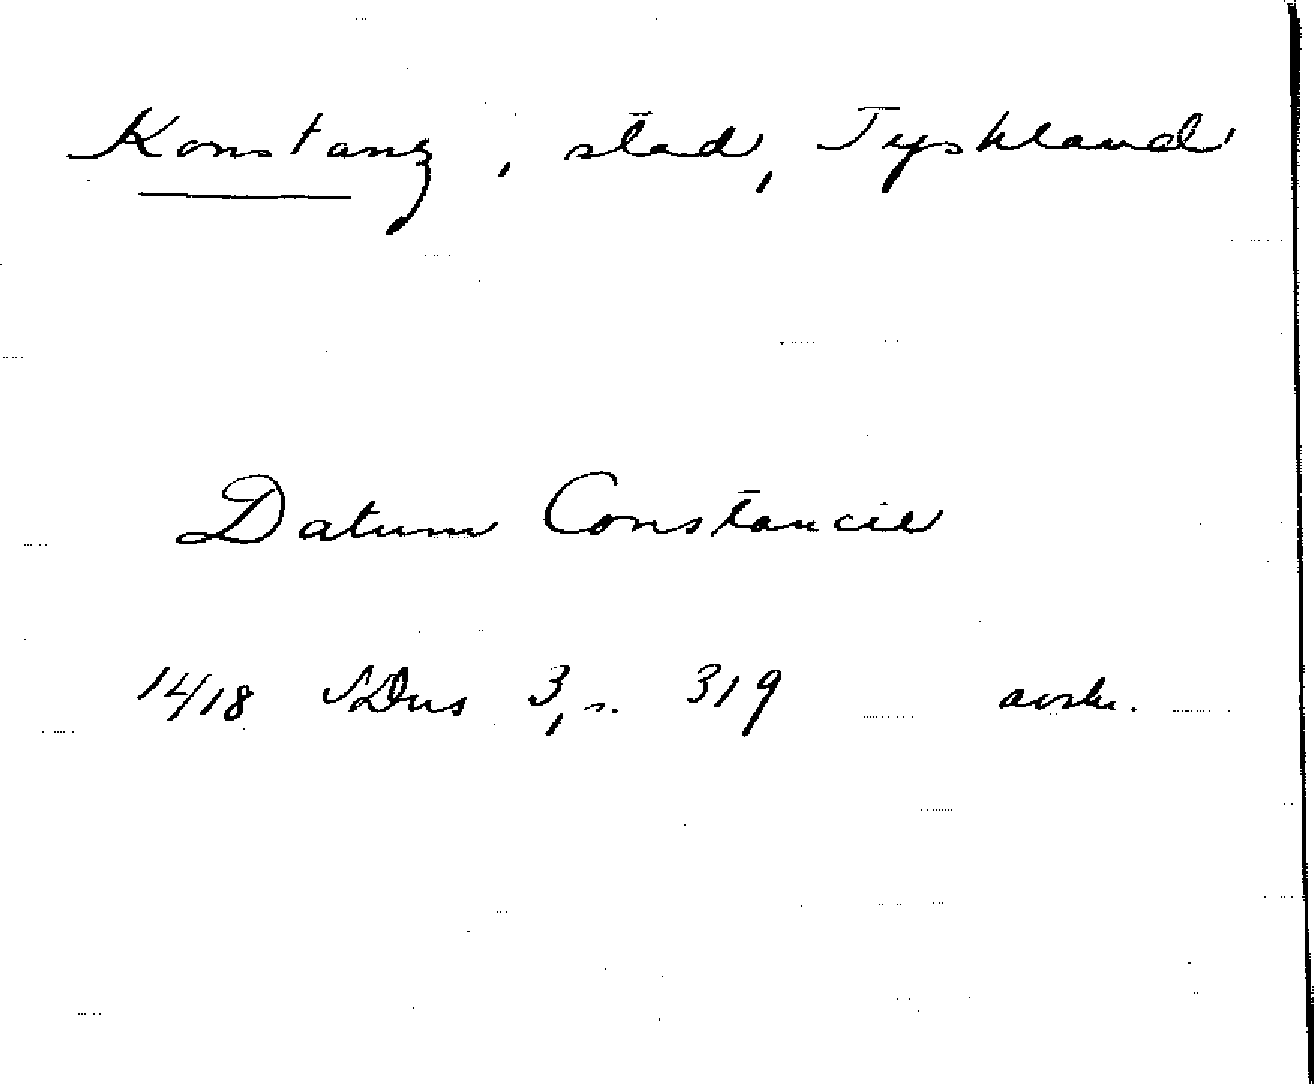 Konstanz, stad, Tyskland
Datum Constancie
1418 SDns 3, s. 319 avskr.